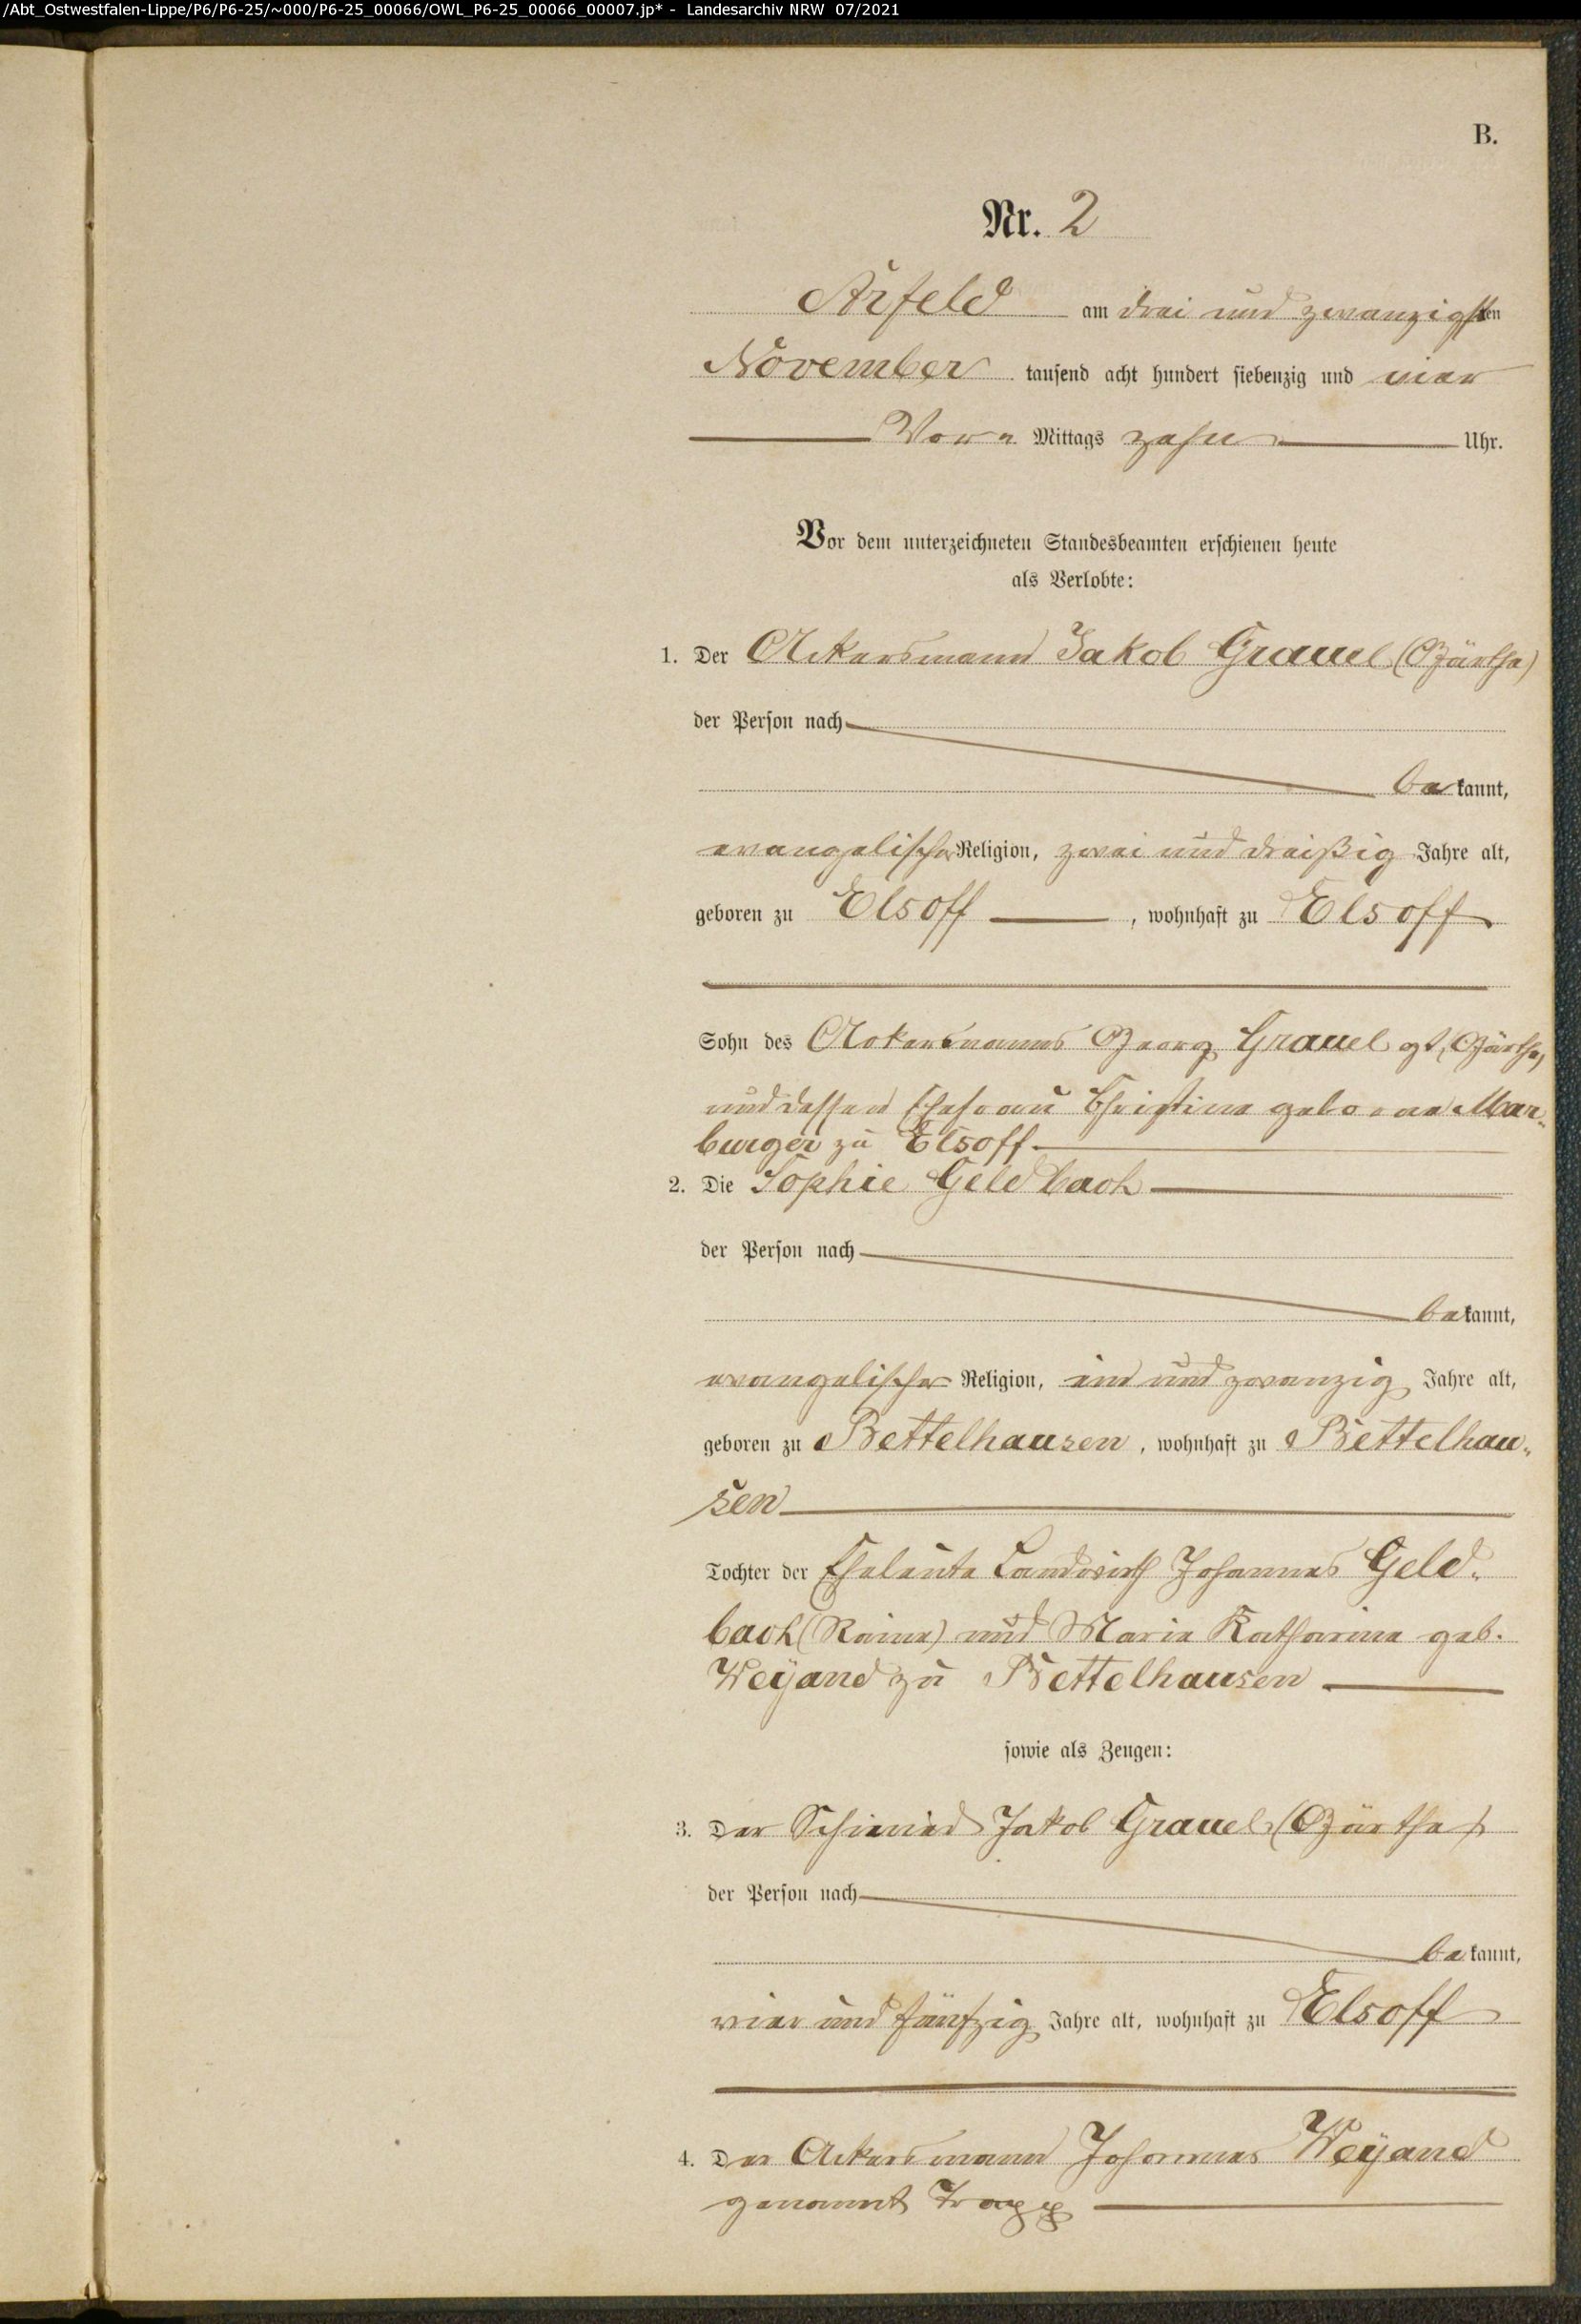 /Abt_Ostwestfalen-Lippe/P6/P6-25/~000/P6-25_00066/OWL_P6-25_00066_00007.jp* - Landesarchiv NRW 07/2021
B.
Nr. 2
Arfeld am drei und zwanzigsten
November tausend acht hundert siebenzig und vier
Vor Mittags zehn Uhr.
Vor dem unterzeichneten Standesbeamten erschienen heute
als Verlobte:
1. Der Ackersmann Jakob Grauel (Görthe)
der Person nach
bekannt,
evangelischer Religion, zwei und dreißig Jahre alt,
geboren zu Elsoff, wohnhaft zu Elsoff
Sohn des Ackersmanns Georg Grauel gt, Görthe,
und dessen Ehefrau Christine geborene Mar„
burger zu Elsoff
2. Die Sophie Geldbach
der Person nach
bekannt,
evangelischer Religion, ein und zwanzig Jahre alt,
geboren zu Bettelhausen, wohnhaft zu Bettelhau„
sen
Tochter der Eheleute Landwirth Johannes Geld„
bach (Reine) und Marie Katharine geb.
Weÿand zu Bettelhausen
sowie als Zeugen:
3. Der Schmied Jakob Grauel (Görthe)
der Person nach
bekannt,
vier und fünfzig Jahre alt, wohnhaft zu Elsoff
4. Der Ackersmann Johannes Weÿand
genannt Trapp